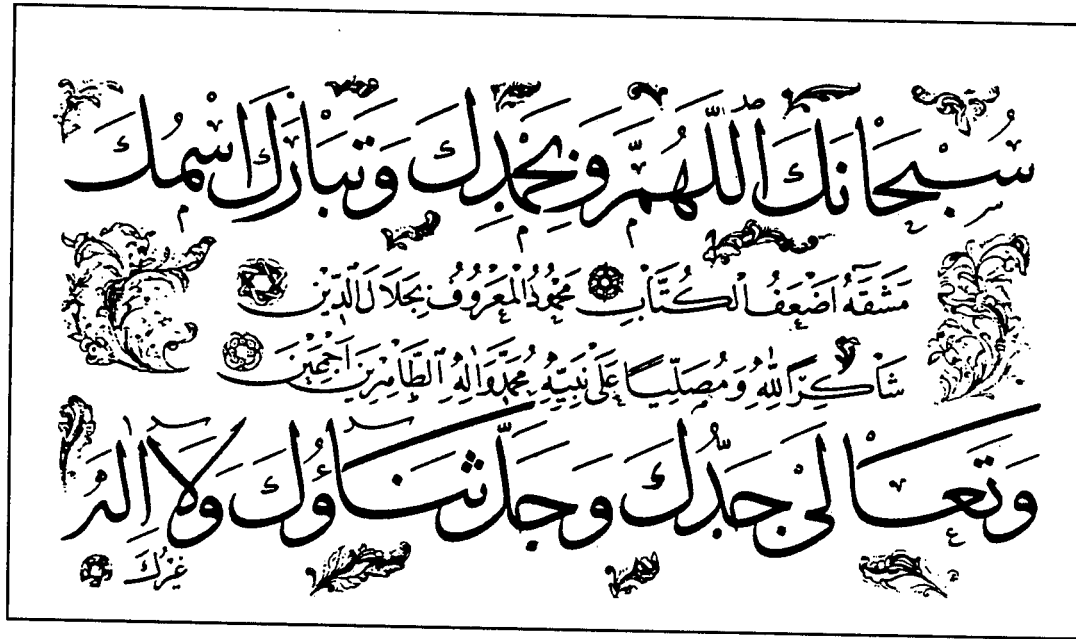 سُبْحَانَكَ اللّٰهُمَّ وَبِحَمْدِكَ وَتَبَارَكَ اسْمُكَ
مَشَقَهُ اَضْعَفُ الْكُتَّابِ مَحْمُودُ الْمَعْرُوفُ بِجَلَالِ الدِّيْنِ
شَاكِرًا لِلّٰهِ وَمُصَلِّيًا عَلٰى نَبِيِّهِ مُحَمَّدٍ وَاٰلِهِ الطَّاهِرِيْنَ اَجْمَعِيْنَ
وَتَعَالٰى جَدُّكَ وَجَلَّ ثَنَاؤُكَ وَلَا اِلٰهَ
غَيْرُكَ